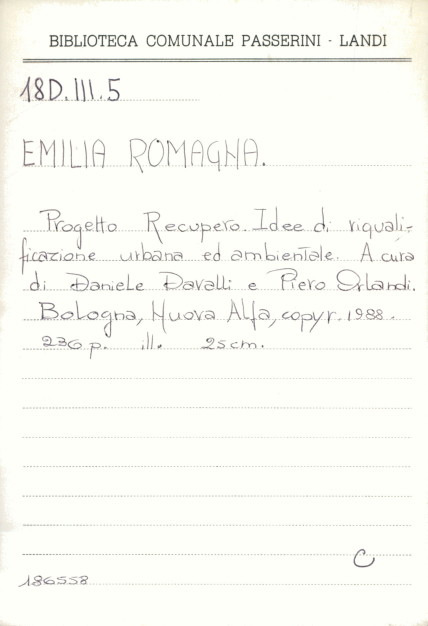 BIBLIOTECA COMUNALE PASSERINI - LANDI
18D.III.5
EMILIA ROMAGNA.
Progetto Recupero. Idee di riquali-
ficazione urbana ed ambientale. A cura
di Daniele Davalli e Piero Orlandi.
Bologna, Nuova Alfa, copyr. 1988.
236 p. ill. 25 cm.
C
186558